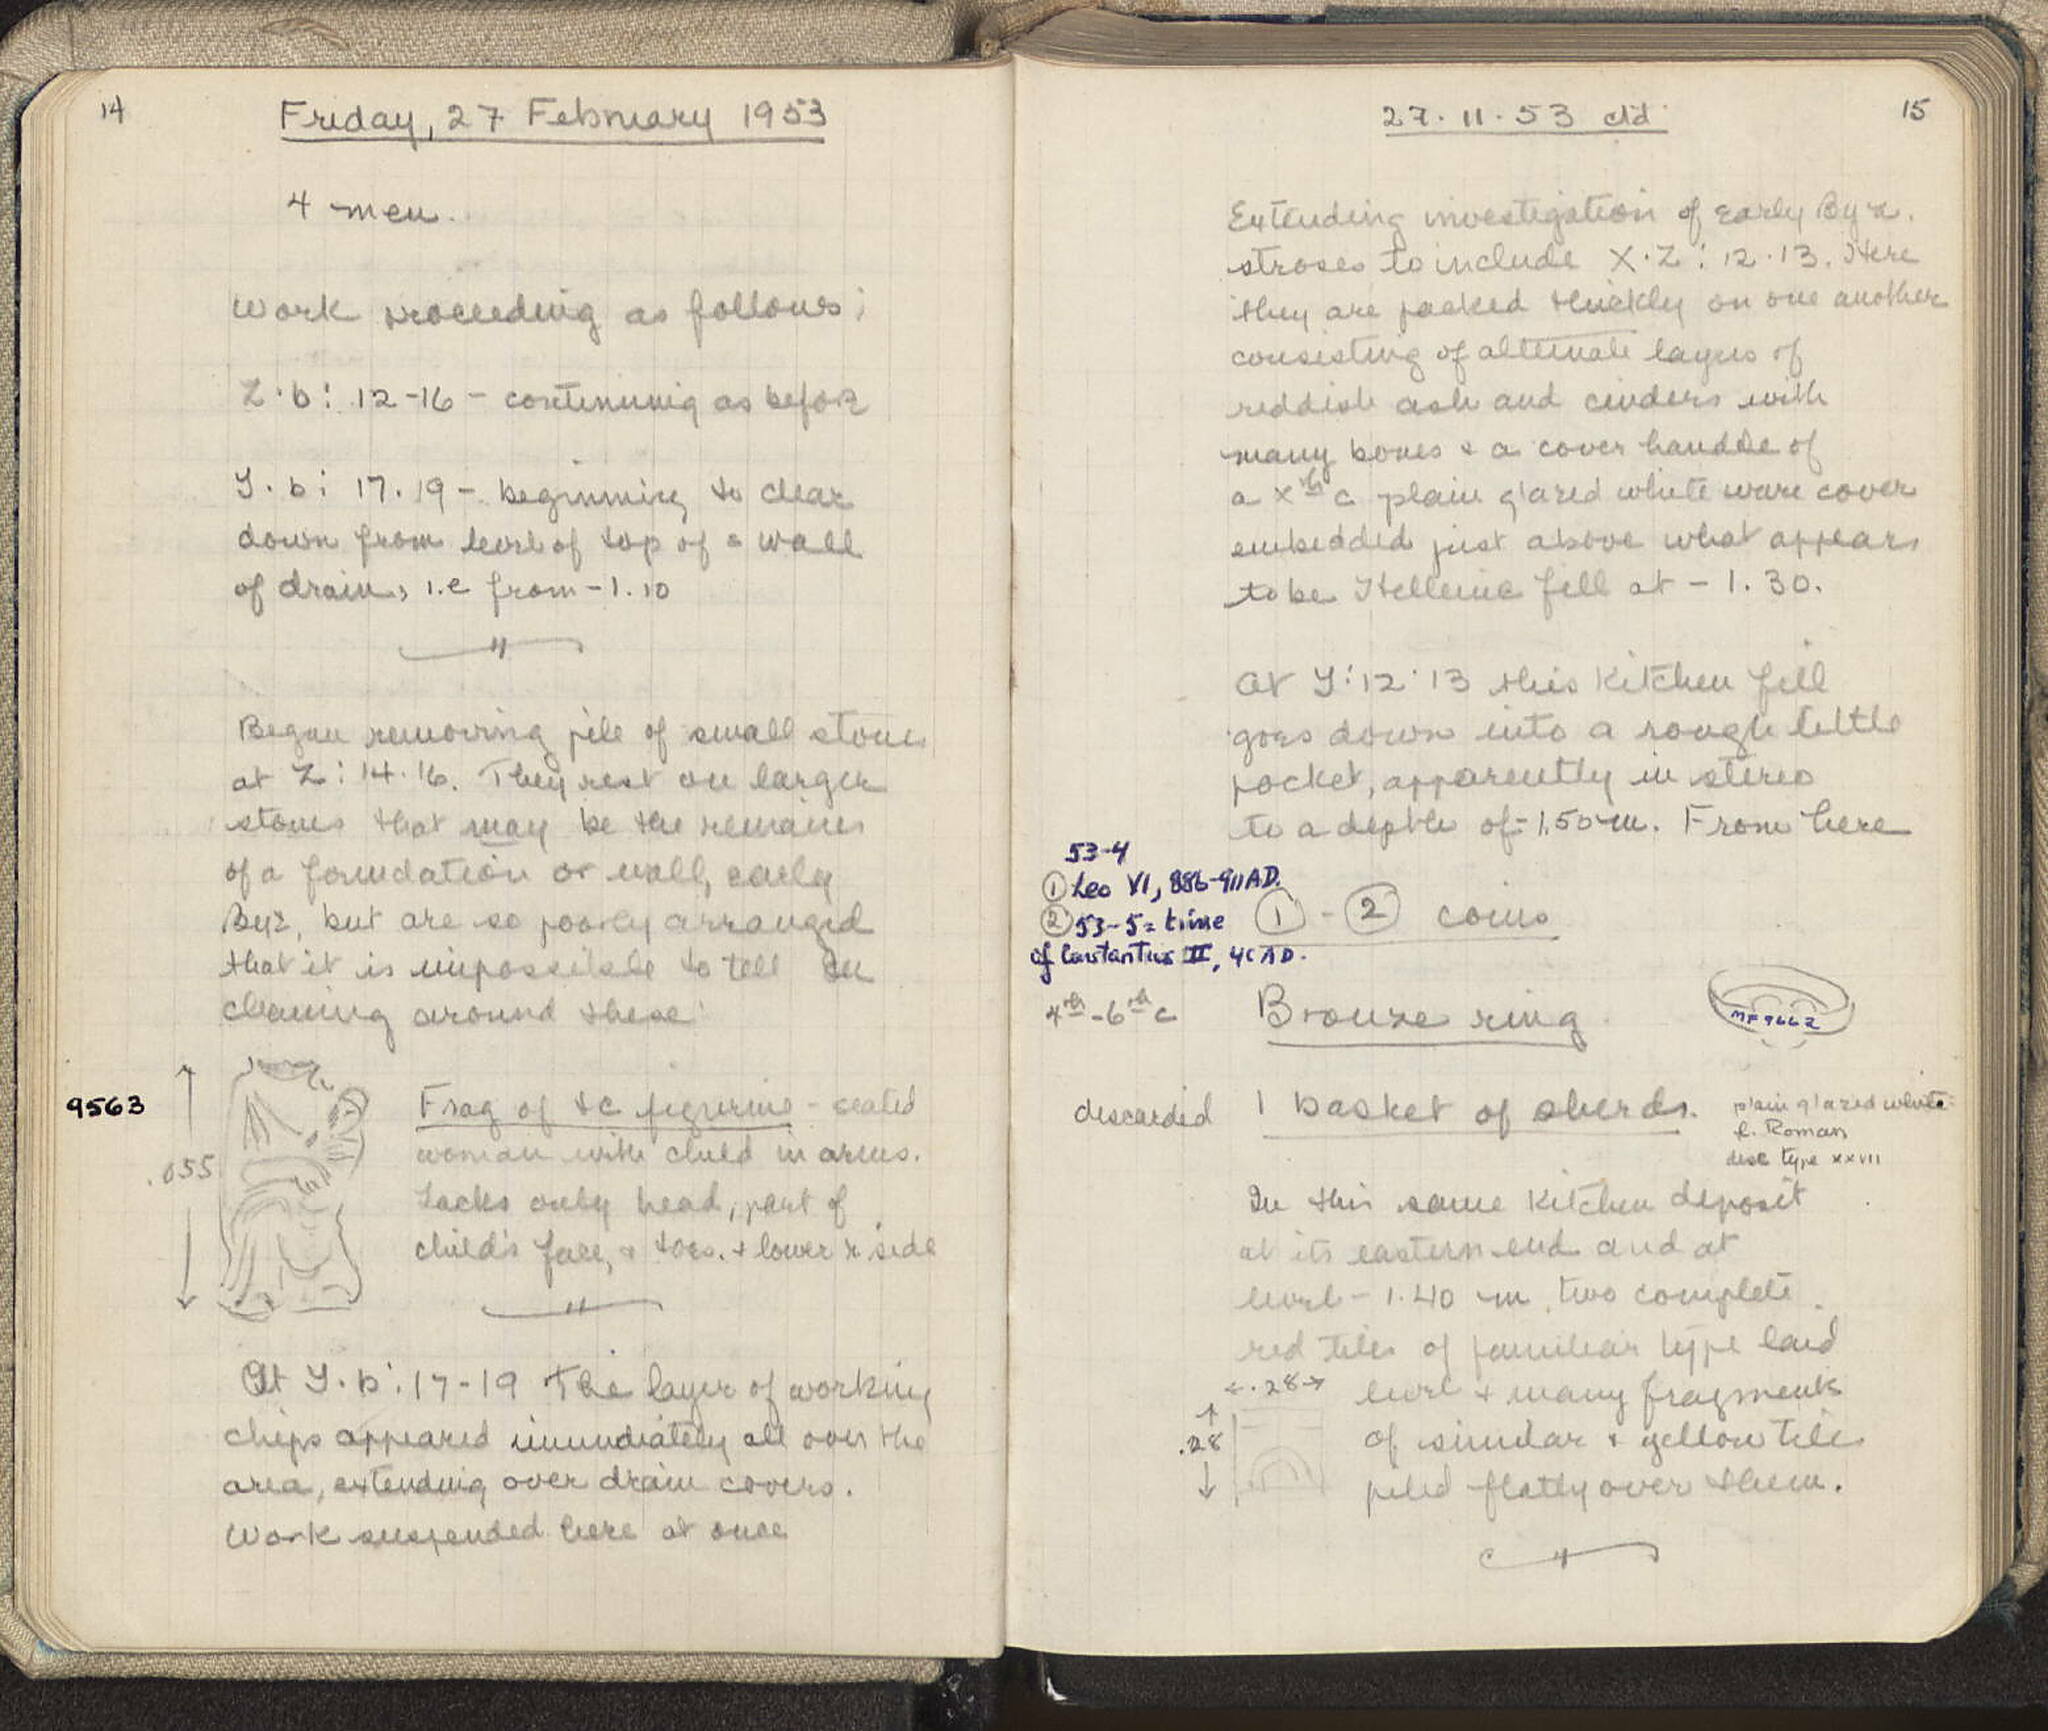 14
Friday, 27 February 1953
4 men.
Work proceeding as follows;
Z·b: 12-16 - continuing as before
Y·b: 17·19 - beginning to clear
down from level of top of = wall
of drain, i.e from -1.10
Began removing pile of small stones
at Z: 14·16. They rest on larger
stones that may be the remains
of a foundation or wall, early
Byz, but are so poorly arranged
that it is impossible to tell In
cleaning around these:
9563
.055
Frag of tc figurine - seated
woman with child in arms.
Lacks only head, part of
child's face, & toes. & lower r side
At Y·b: 17-19 The layer of working
chips appeared immediately all over the
area, extending over drain covers.
Work suspended here at once
27·11·53 ctd
15
Extending investigation of early Byz.
stroses to include X·Z: 12·13. Here
they are packed thickly on one another
consisting of alternate layers of
reddish ash and cinders with
many bones & a cover handle of
a Xth c plain glazed white ware cover
embedded just above what appears
to be Hellenic fill at -1.30.
At Y: 12·13 this Kitchen fill
goes down into a rough little
pocket, apparently in stereo
to a depth of -1.50 m. From here
53-4
① Leo VI, 886-911 AD.
② 53-5 = time
of Constantius II, 4c AD.
① - ② coins
4th-6th c
Bronze ring
MF 9662
discarded
1 basket of sherds.
plain glazed white
l. Roman
disc type XXVII
In this same Kitchen deposit
at its eastern end and at
level -1.40 m, two complete
red tiles of familiar type laid
.28
level & many fragments
.28
of similar & yellow tile
piled flatly over them.